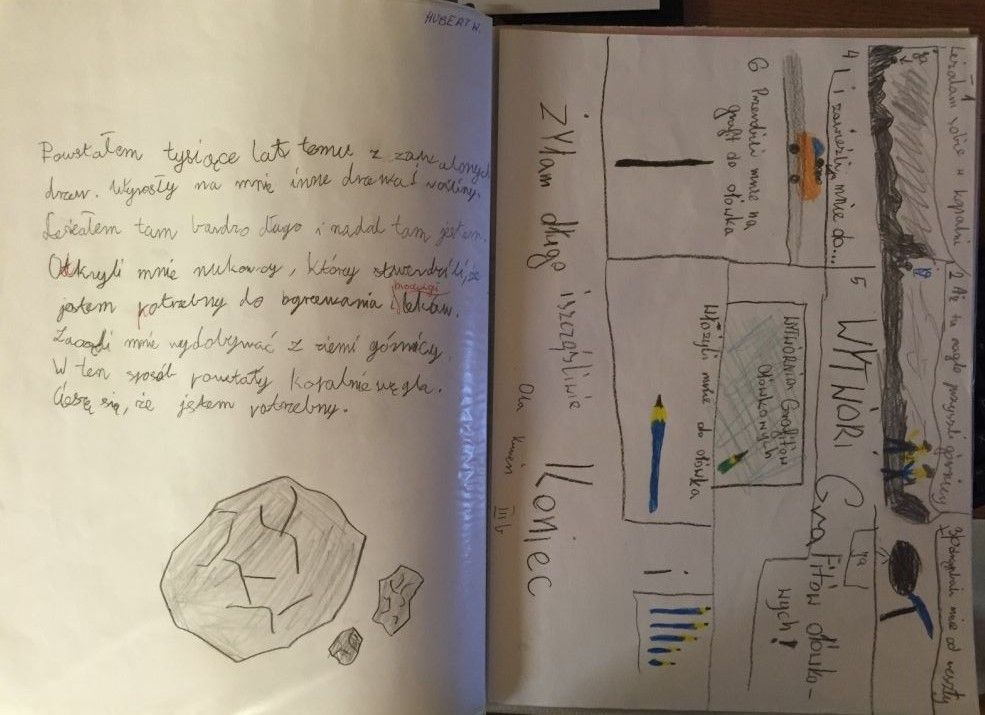 HUBERT W.
Powstałem tysiące lat temu z zawalonych
drzew. Wyrosły na mnie inne drzewa i rośliny.
Leżałem tam bardzo długo i nadal tam jestem.
Odkryli mnie naukowcy, którzy stwierdzili, że
jestem potrzebny do ogrzewania i leków.
produkcji
Zaczęli mnie wydobywać z ziemi górnicy.
W ten sposób powstały kopalnie węgla.
Cieszę się, że jestem potrzebny.
1
Leżałam sobie w kopalni
2 Aż tu nagle przyszli górnicy
3
mnie od reszty
ja
ja
4 I zawieźli mnie do...
5 WYTWÓRNI
Grafitów ołówko-
wych!
6 Przerobili mnie na
grafit do ołówka
WYTWÓRNIA Grafitów
ołówkowych
Włożyli mnie do ołówka
i
żyłam długo i szczęśliwie
Koniec
Ola
III b